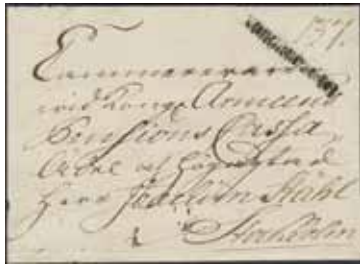 137.
Cammereraren
wid Kongl Armeens
Pensions Cassa
Ädel och Högachtad
Herr Joachim Ståhl
Stockholm